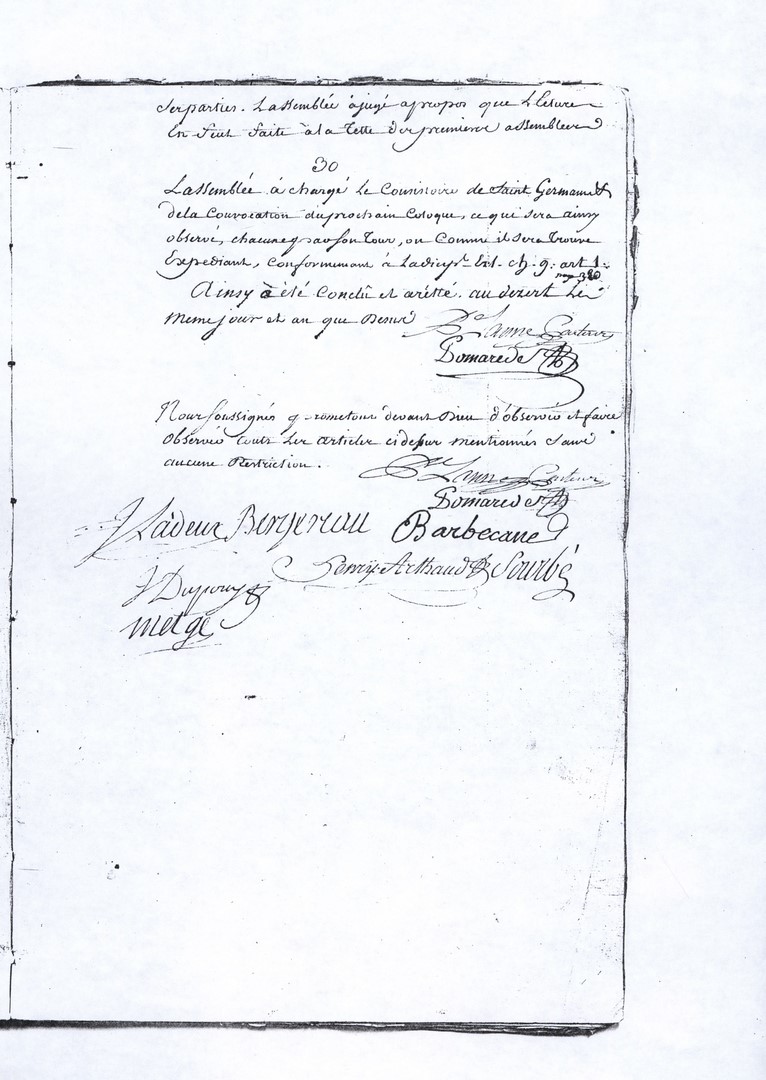 ses parties. Lassemblée à jugé apropos que Lecture
En feut faite à la Tette des premieres assemblées
30
Lassemblée à chargé Le Consistoire de Saint Germain
de la Convocation du prochain Coloque, ce qui sera ainsy
observé, chacune a son Tour, ou Comme il sera Trouve
Expediant, Conformemant à La discipl. Ecl. ch. 9. art 1.
Ainsy à été Conclû et arétté. au dezert Le
meme jour et an que Dessus Lanne Pasteur
Pomarede
Nous soussignés promettons devant Dieu d'observer et faire
observer touts Les articles cidesus mentionnés Sans
aucune Restriction. Lanne Pasteur
Pomarede
J Ladeux Bergereau Barbecane
Arthaud Sourbé
J Dupouy
metge